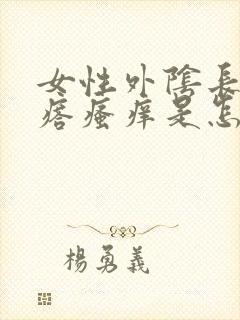 女性外陰長
瘩瘙痒是怎
楊勇義